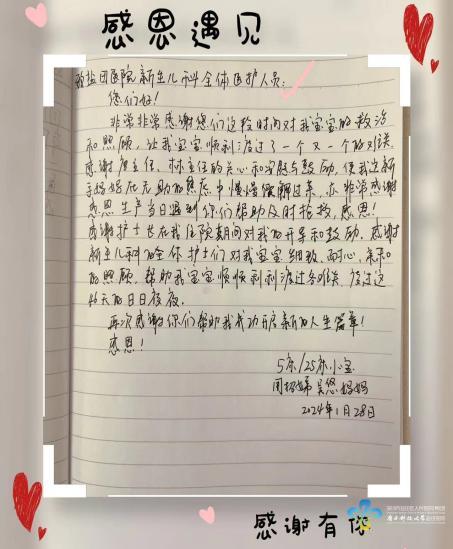 感恩遇见
盐田医院新生儿科全体医护人员：
您们好！
非常非常感谢您们这段时间对我宝宝的救治
和照顾，让我宝宝顺利渡过了一个又一个的难关
感谢 主任、林主任的关心和安慰与鼓励，使我这新
手妈妈在无助的焦虑中慢慢缓解过来，在非常感谢
感恩生产当日遇到你们帮助及时抢救，感恩！
感谢护士长在我住院期间对我的开导和鼓励，感谢
新生儿科的全体护士们对我宝宝细致、耐心、亲亲
的照顾，帮助我宝宝顺顺利利渡过各难关，度过这
天的日日夜夜。
再次感谢你们帮助我成功开启新的人生篇章！
感恩！
5床/25床小宝
妈妈
2024年1月28日
感谢有你